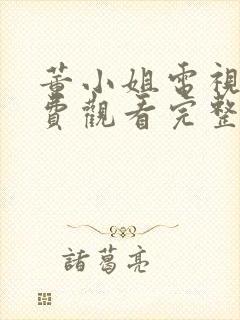 董小姐電視
費觀看完整
諸葛亮